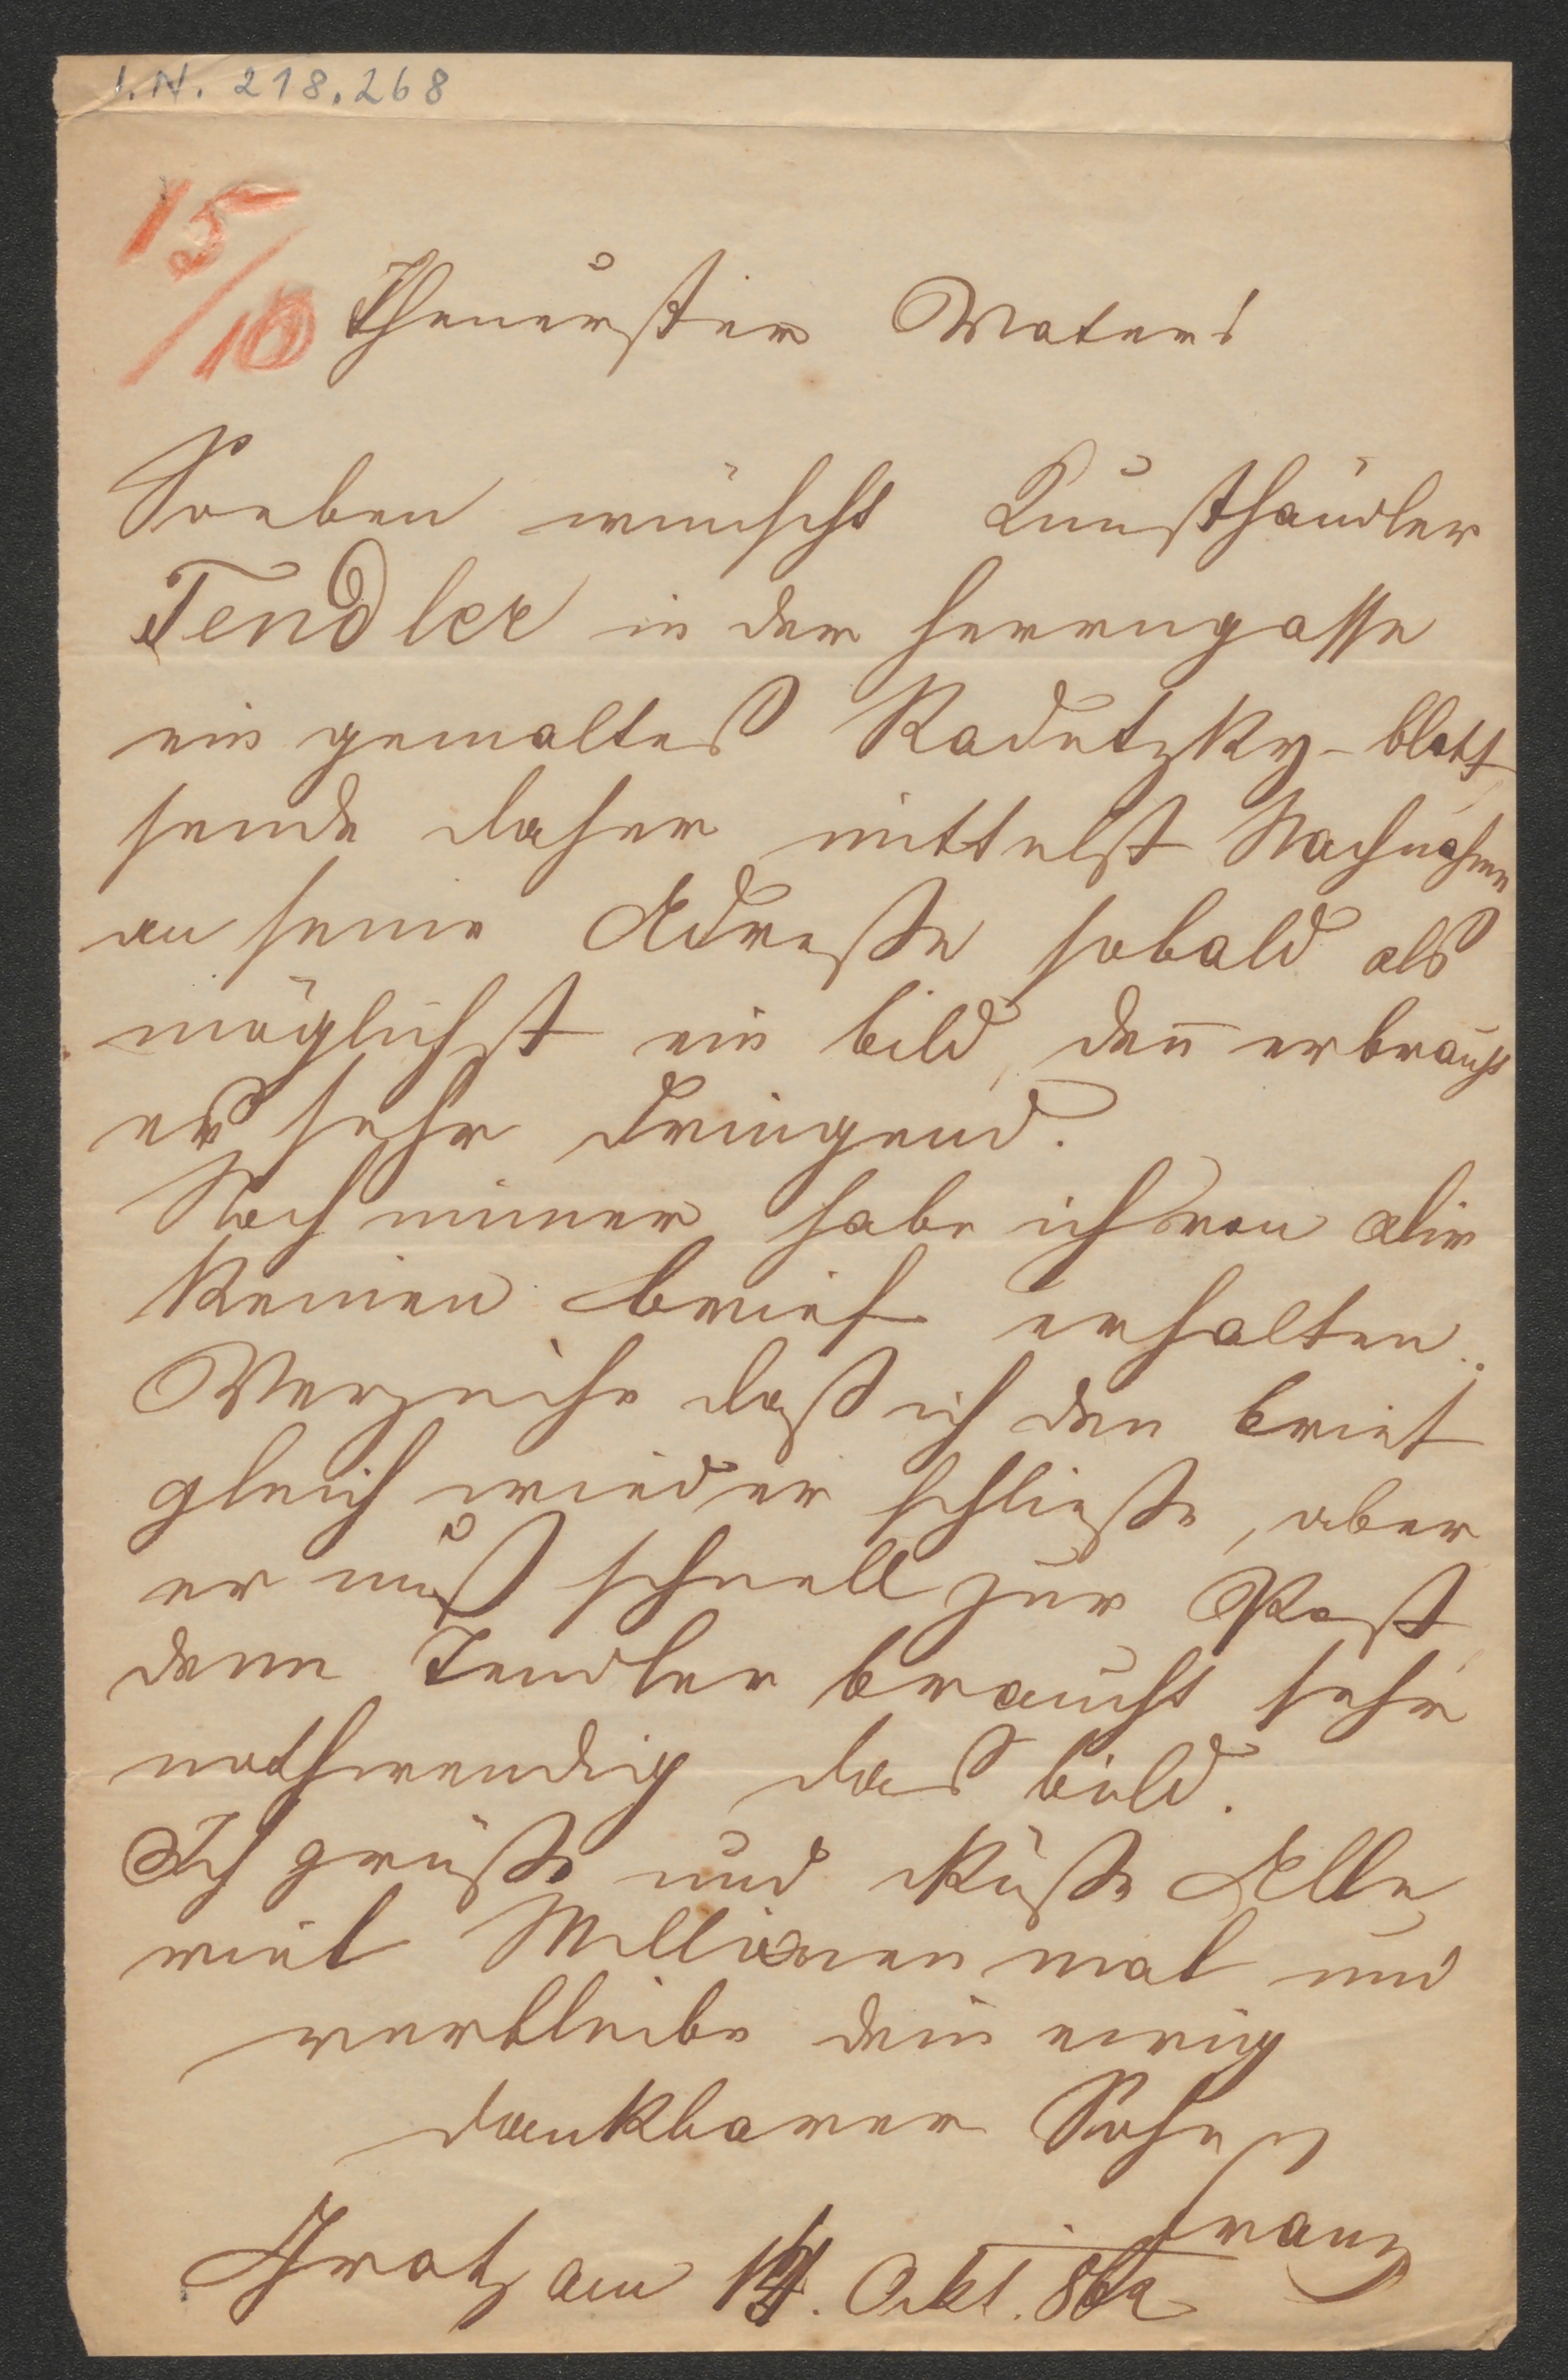 I.N. 218.268
15/10
Theuerster Vater!
Soeben wünscht Kunsthändler
Tendler in der Herrengasse
ein gemaltes Radetzky-blatt,
sende daher mittelst Nachnahme
an seine Adresse sobald als
möglichst ein bild, den̅ er braucht
es sehr dringend.
Noch immer habe ich von dir
keinen brief erhalten.
Verzeihe daß ich den brief
gleich wieder schließe, aber
er muß schnell zur Post,
denn Tendler braucht sehr
nothwendig das bild.
Ich grüße und küße Alle
viel Millionen mal und
verbleibe dein ewig
dankbarer Sohn
Franz
Gratz am 14. Okt. 862